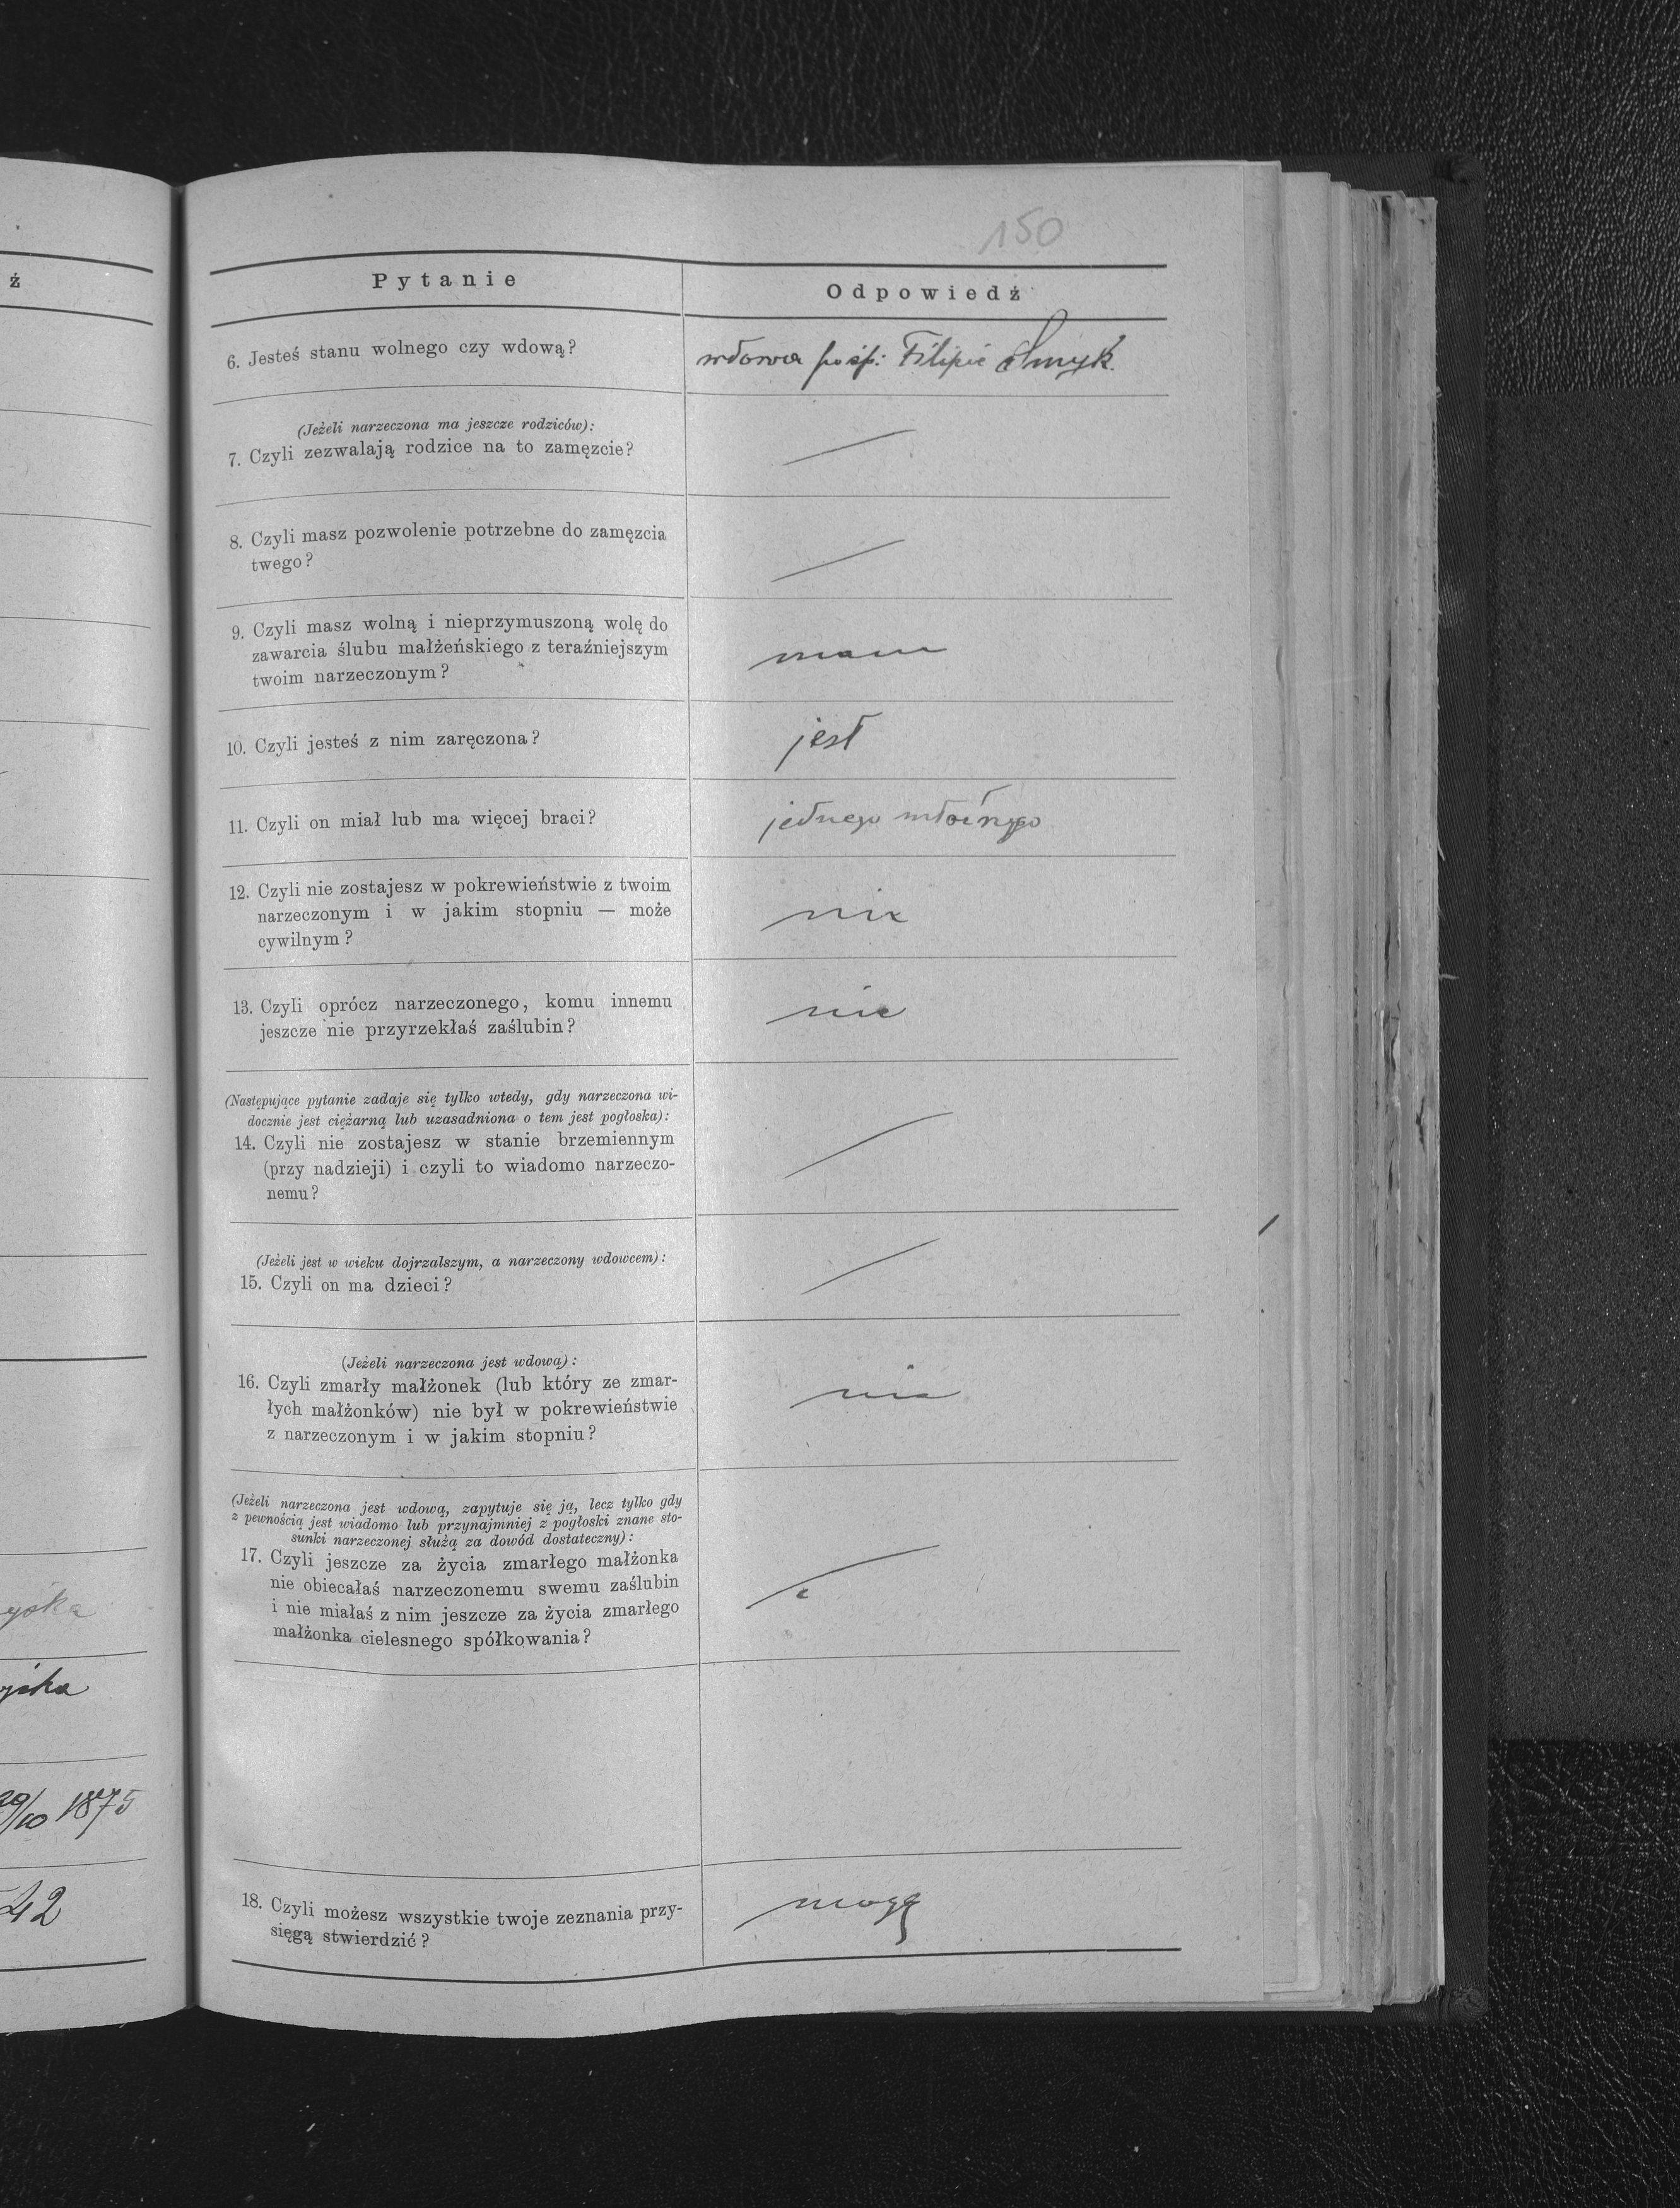 150
ż
Pytanie
Odpowiedź
6. Jesteś stanu wolnego czy wdową?
wdowa po śp: Filipie Smyk.
(Jeżeli narzeczona ma jeszcze rodziców):
7. Czyli zezwalają rodzice na to zamęzcie?
8. Czyli masz pozwolenie potrzebne do zamęzcia
twego?
9. Czyli masz wolną i nieprzymuszoną wolę do
zawarcia ślubu małżeńskiego z teraźniejszym
twoim narzeczonym?
mam
10. Czyli jesteś z nim zaręczona?
jest
11. Czyli on miał lub ma więcej braci?
jednego
12. Czyli nie zostajesz w pokrewieństwie z twoim
narzeczonym i w jakim stopniu — może
cywilnym?
nie
13. Czyli oprócz narzeczonego, komu innemu
jeszcze nie przyrzekłaś zaślubin?
nie
(Następujące pytanie zadaje się tylko wtedy, gdy narzeczona wi-
docznie jest ciężarną lub uzasadniona o tem jest pogłoska):
14. Czyli nie zostajesz w stanie brzemiennym
(przy nadzieji) i czyli to wiadomo narzeczo-
nemu?
(Jeżeli jest w wieku dojrzalszym, a narzeczony wdowcem):
15. Czyli on ma dzieci?
(Jeżeli narzeczona jest wdową):
16. Czyli zmarły małżonek (lub który ze zmar-
łych małżonków) nie był w pokrewieństwie
z narzeczonym i w jakim stopniu?
nie
(Jeżeli narzeczona jest wdową, zapytuje się ją, lecz tylko gdy
z pewnością jest wiadomo lub przynajmniej z pogłoski znane sto-
sunki narzeczonej służą za dowód dostateczny):
17. Czyli jeszcze za życia zmarłego małżonka
nie obiecałaś narzeczonemu swemu zaślubin
i nie miałaś z nim jeszcze za życia zmarłego
małżonka cielesnego spółkowania?
29/10 1875
42
18. Czyli możesz wszystkie twoje zeznania przy-
sięgą stwierdzić?
mogę